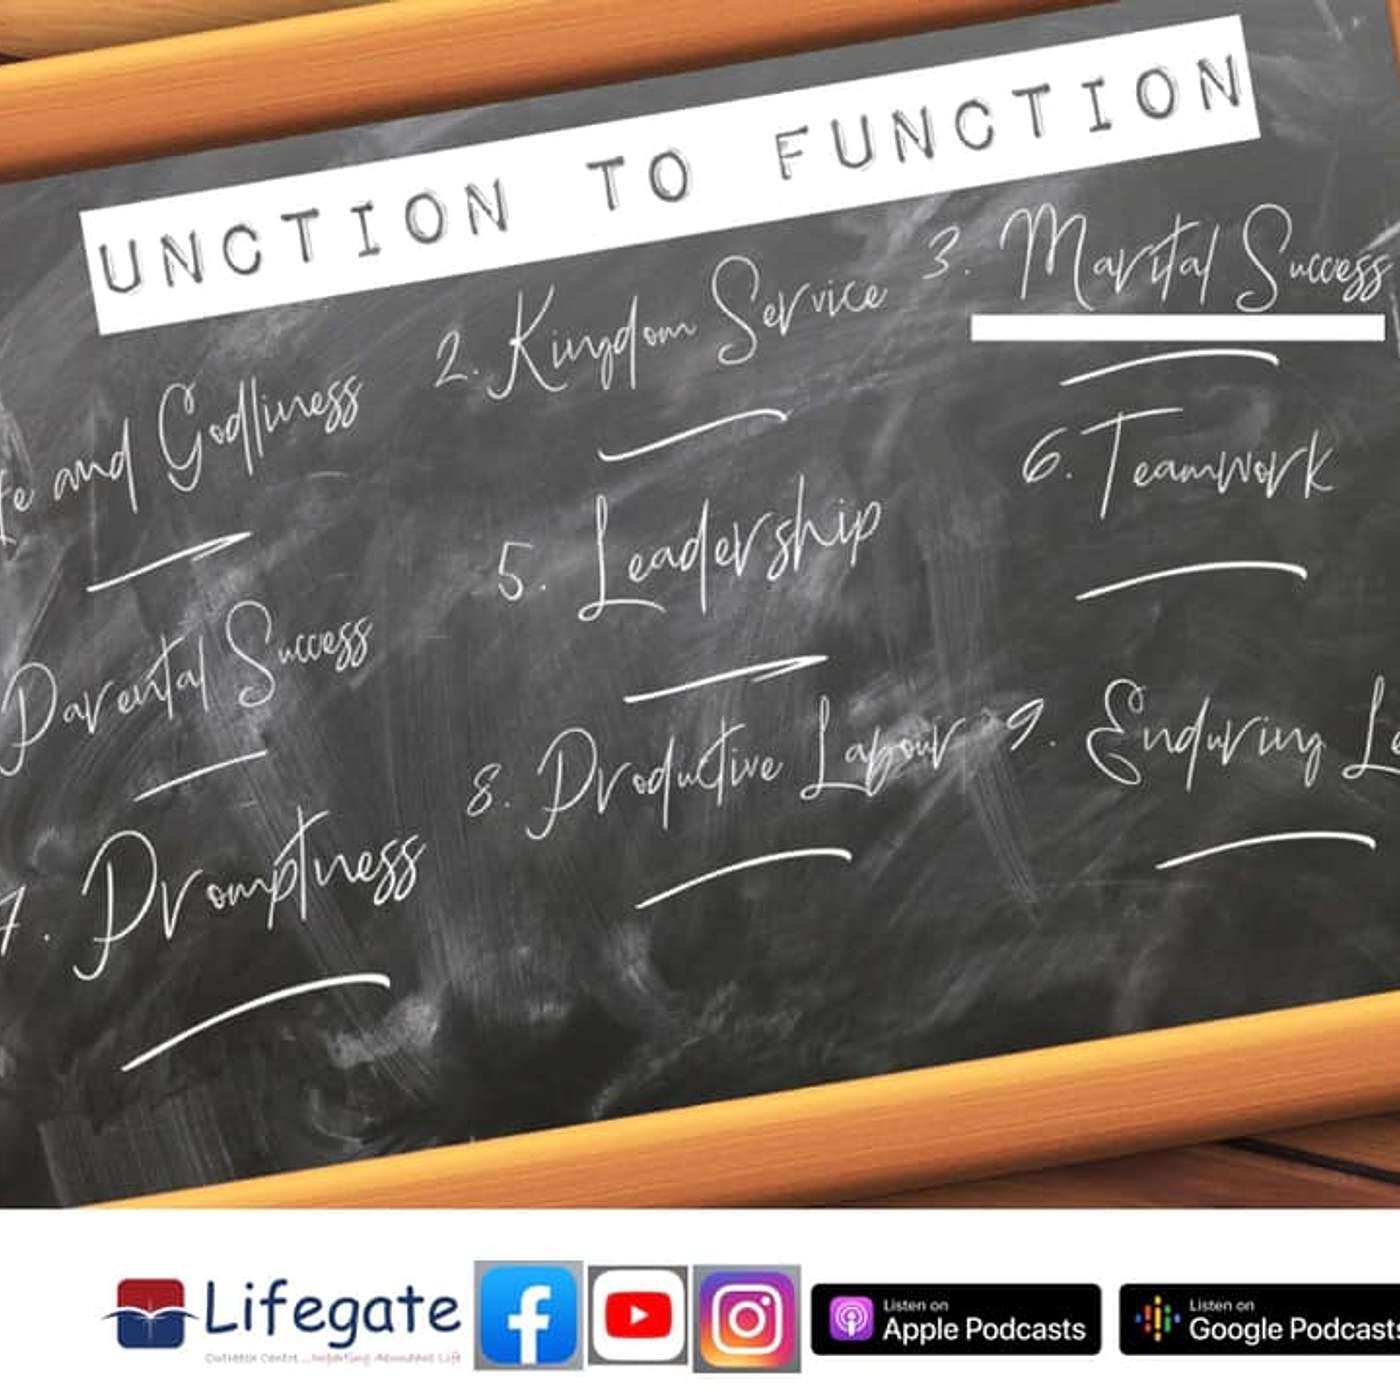 UNCTION TO FUNCTION
fe and Godliness
2. Kingdom Service
3. Marital Success
Parental Success
5. Leadership
6. Teamwork
7. Promptness
8. Productive Labour
9. Enduring L
Lifegate
Outreach Centre ...Imparting Abundant Life
Listen on
Apple Podcasts
Listen on
Google Podcasts